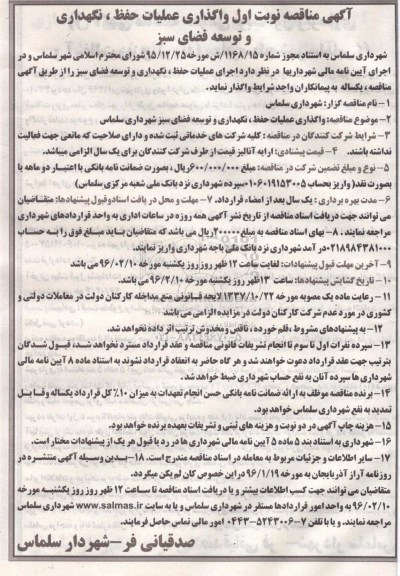 آگهی مناقصه نوبت اول واگذاری عملیات حفظ ، نگهداری
و توسعه فضای سبز
شهرداری سلماس به استناد مجوز شماره ۱۱۶۸/۱۵/ش مورخه ۹۵/۱۲/۲۵ شورای محترم اسلامی شهر سلماس و در
اجرای آیین نامه مالی شهرداریها در نظر دارد اجرای عملیات حفظ ، نگهداری و توسعه فضای سبز را از طریق آگهی
مناقصه، یکساله به پیمانکاران واجد شرایط واگذار نماید.
۱- نام مناقصه گزار: شهرداری سلماس
۲- موضوع مناقصه: واگذاری عملیات حفظ ، نگهداری و توسعه فضای سبز شهرداری سلماس
۳- شرایط شرکت کنندگان در مناقصه : کلیه شرکت های خدماتی ثبت شده و دارای صلاحیت که مانعی جهت فعالیت
نداشته باشند. ۴- قیمت پیشنهادی: ارایه آنالیز قیمت از طرف شرکت کنندگان برای یک سال الزامی میباشد.
۵- نوع و مبلغ تضمین شرکت در مناقصه: مبلغ ۶۰۰/۰۰۰/۰۰۰ریال، بصورت ضمانت نامه بانکی با اعتبار دو ماهه یا
بصورت نقد( واریز بحساب ۰۱۰۶۰۱۹۱۵۳۰۰۵سپرده شهرداری نزد بانک ملی شعبه مرکزی سلماس)
۶- مدت بهره برداری : یک سال بعد از امضاء قرارداد. ۷- مهلت و محل دریافت اسناد وقبول پیشنهادها: متقاضیان
می توانند جهت دریافت اسناد مناقصه از تاریخ نشر آگهی همه روزه در ساعات اداری به واحد قراردادهای شهرداری
مراجعه نمایند. ۸ - بهای اسناد مناقصه به مبلغ ۲۰۰۰۰۰ریال می باشد که متقاضیان باید مبلغ فوق را به حساب
۰۲۱۸۹۸۴۳۸۱۰۰۰در آمد شهرداری نزد بانک ملی باجه شهرداری واریز نمایند.
۹- آخرین مهلت قبول پیشنهادات: لغایت ساعت ۱۲ ظهر روز روز یکشنبه مورخه ۹۶/۰۲/۱۰ می باشد
۱۰- تاریخ گشایش پیشنهادها: ساعت ۱۳ ظهر روز یکشنبه مورخه ۹۶/۲/۱۰ می باشد.
۱۱- رعایت ماده یک مصوبه مورخه ۱۳۳۷/۱۰/۲۲ لایحه قانونی منع مداخله کارکنان دولت در معاملات دولتی و
کشوری در مورد عدم شرکت کارکنان دولت در مزایده الزامی می باشد
۱۲- به پیشنهادهای مشروط ، قلم خورده ، ناقص و مخدوش ترتیب اثر داده نخواهد شد.
۱۳- سپرده نفرات اول تا سوم تا انجام تشریفات قانونی مناقصه و عقد قرارداد مسترد نخواهد شد، قبول شدگان
بترتیب جهت عقد قرارداد دعوت خواهند شد و هر گاه حاضر به انعقاد قرارداد نشوند به استناد ماده ۸ آیین نامه مالی
شهرداری ها سپرده آنان به نفع حساب شهرداری ضبط خواهد شد.
۱۴- برنده مناقصه موظف به ارائه ضمانت نامه بانکی حسن انجام تعهدات به میزان ۱۰٪ کل قرارداد یکساله وقابل
تمدید به نفع شهرداری سلماس خواهد بود.
۱۵- هزینه چاپ آگهی در دو نوبت و هزینه های ثبتی و تشریفات بعهده برنده خواهد بود.
۱۶- شهرداری به استناد بند ۵ ماده ۵ آیین نامه مالی شهرداری ها در رد یا قبول هر یک از پیشنهادات مختار است.
۱۷- سایر اطلاعات و جزئیات مربوط به معامله در اسناد مناقصه مندرج است. ۱۸-بدین وسیله آگهی منتشره در
روزنامه آراز آذربایجان به مورخه ۹۶/۱/۱۹ در این خصوص کان لم یکن میگردد.
متقاضیان می توانند جهت کسب اطلاعات بیشتر و یا دریافت اسناد مناقصه تا ساعت ۱۲ ظهر روز روز یکشنبه مورخه
۹۶/۰۲/۱۰ به واحد امور قراردادها مستقر در شهرداری سلماس و یا به سایت www.salmas.ir شهرداری سلماس
مراجعه نمایند. و یا با تلفن ۷-۵۲۴۳۰۰۶-۰۴۴۳ امور مالی تماس حاصل فرمایند.
صدقیانی فر-شهردار سلماس